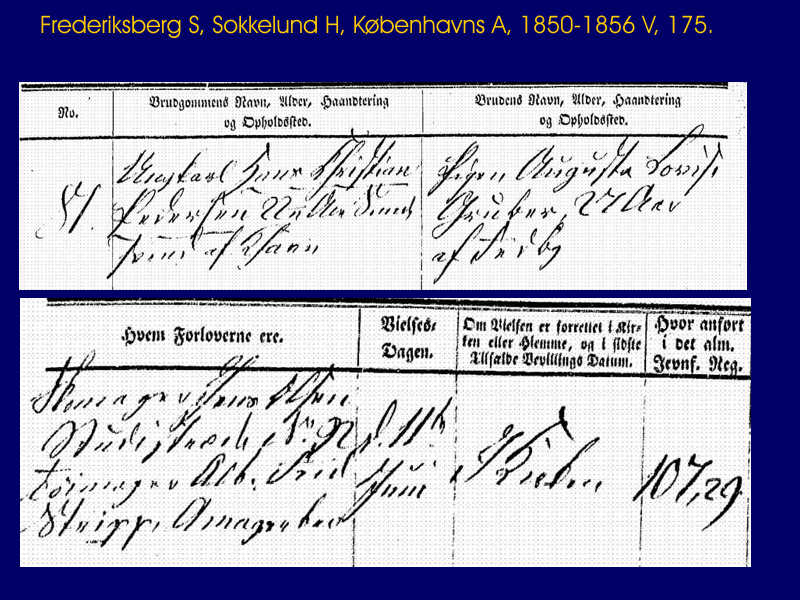 Frederiksberg S, Sokkelund H, Københavns A, 1850-1856 V, 175.
No.
Brudgommens Navn, Alder, Haandtering
og Opholdssted.
Brudens Navn, Alder, Haandtering
og Opholdssted.
51.
Ungkarl Hans Christian
Pedersen Aar
svend af Khavn
Pigen Augusta Lovise
Gruber, 27 Aar
af
Hvem Forloverne ere.
Vielses-
Dagen.
Om Vielsen er forrettet i Kir-
ken eller Hjemme, og i sidste
Tilfælde Bevillings Datum.
Hvor anført
i det alm.
Jevnf. Reg.
Jens Olsen
Studistræde
Alb.
Amagerbro
d. 11te
Juni
i Kirken
107, 29